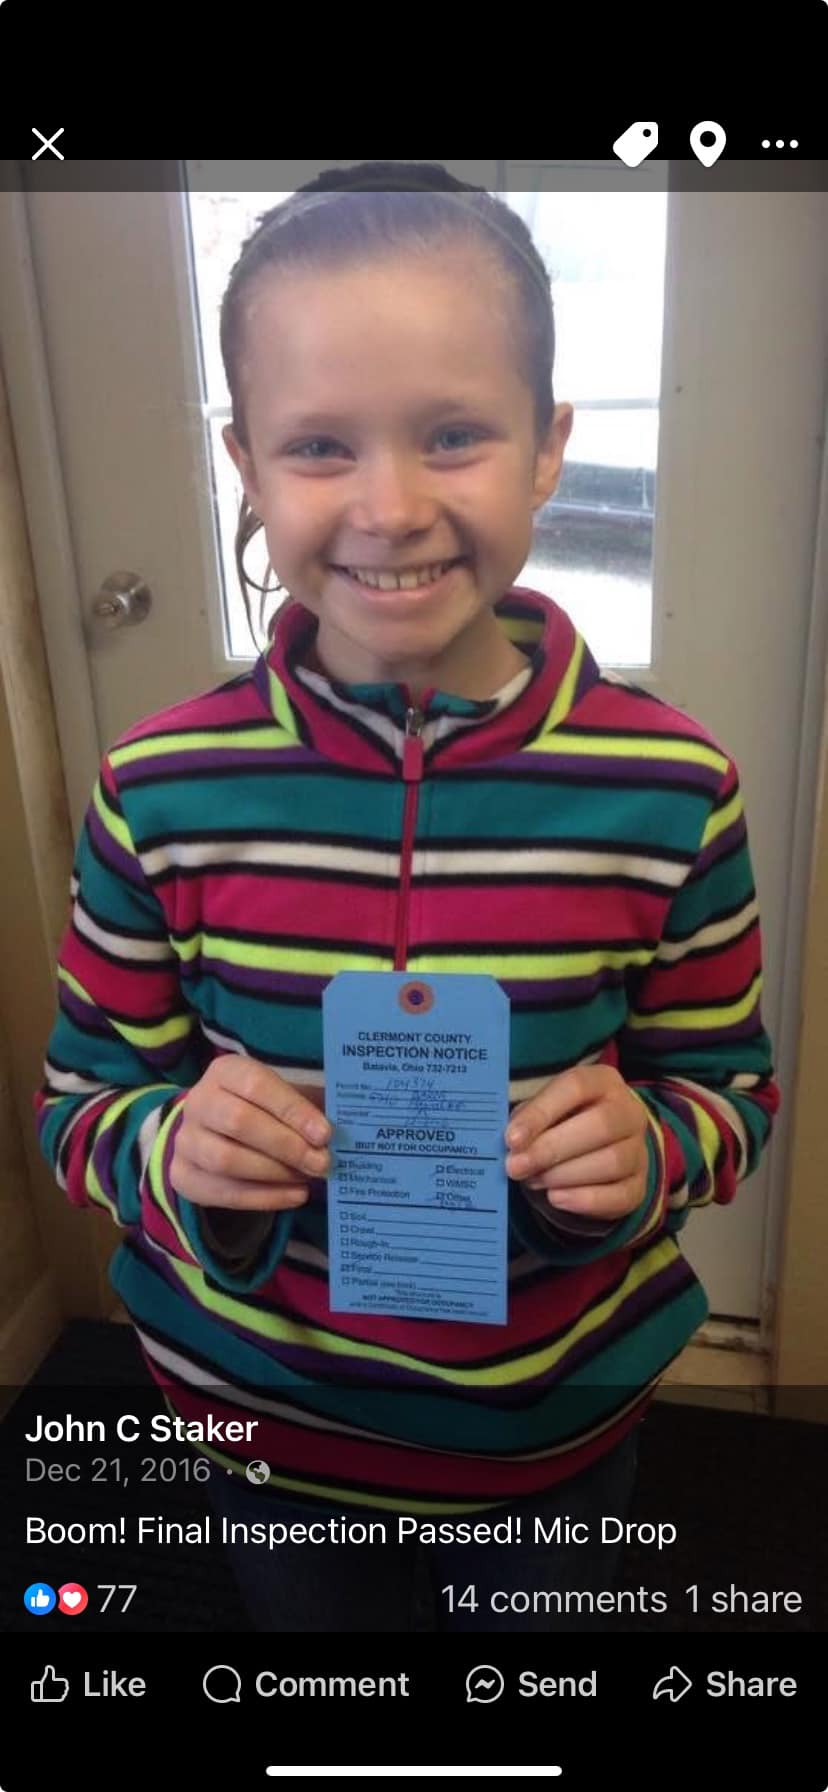 CLERMONT COUNTY
INSPECTION NOTICE
Batavia, Ohio 732-7213
Permit No.
Address
Inspector
Date
APPROVED
(BUT NOT FOR OCCUPANCY)
Building
Electrical
Mechanical
WMSC
Fire Protection
Other
Soil
Crawl
Rough-In
Service Release
Final
Partial (see back)
NOT APPROVED FOR OCCUPANCY
John C Staker
Dec 21, 2016
Boom! Final Inspection Passed! Mic Drop
77
14 comments 1 share
Like Comment Send Share